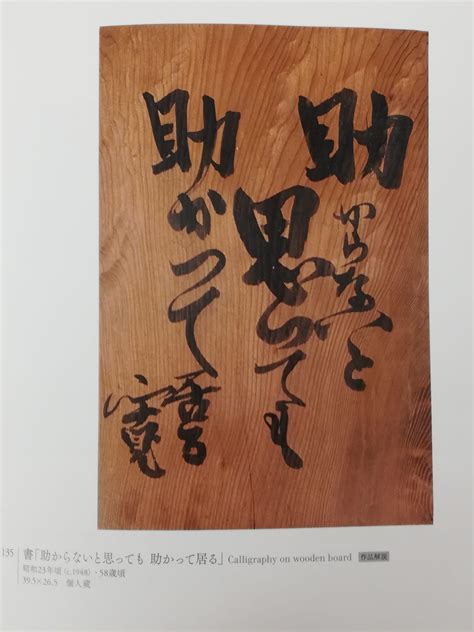 助からないと
思っても
助かって居る
寛
135 書「助からないと思っても 助かって居る」Calligraphy on wooden board 作品解説
昭和23年頃(c.1948)・58歳頃
39.5×26.5 個人蔵